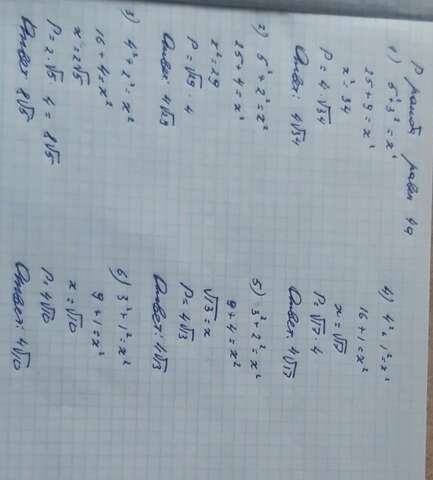 P ромба равен 4a
1) 5² + 3² = x²
25 + 9 = x²
x² = 34
P = 4 · √34
Ответ: 4√34
2) 5² + 2² = x²
25 + 4 = x²
x² = 29
P = √29 · 4
Ответ: 4√29
3) 4² + 2² = x²
16 + 4 = x²
x = 2√5
P = 2 · √5 · 4 = 8√5
Ответ: 8√5
4) 4² + 1² = x²
16 + 1 = x²
x = √17
P = √17 · 4
Ответ: 4√17
5) 3² + 2² = x²
9 + 4 = x²
√13 = x
P = 4√13
Ответ: 4√13
6) 3² + 1² = x²
9 + 1 = x²
x = √10
P = 4√10
Ответ: 4√10